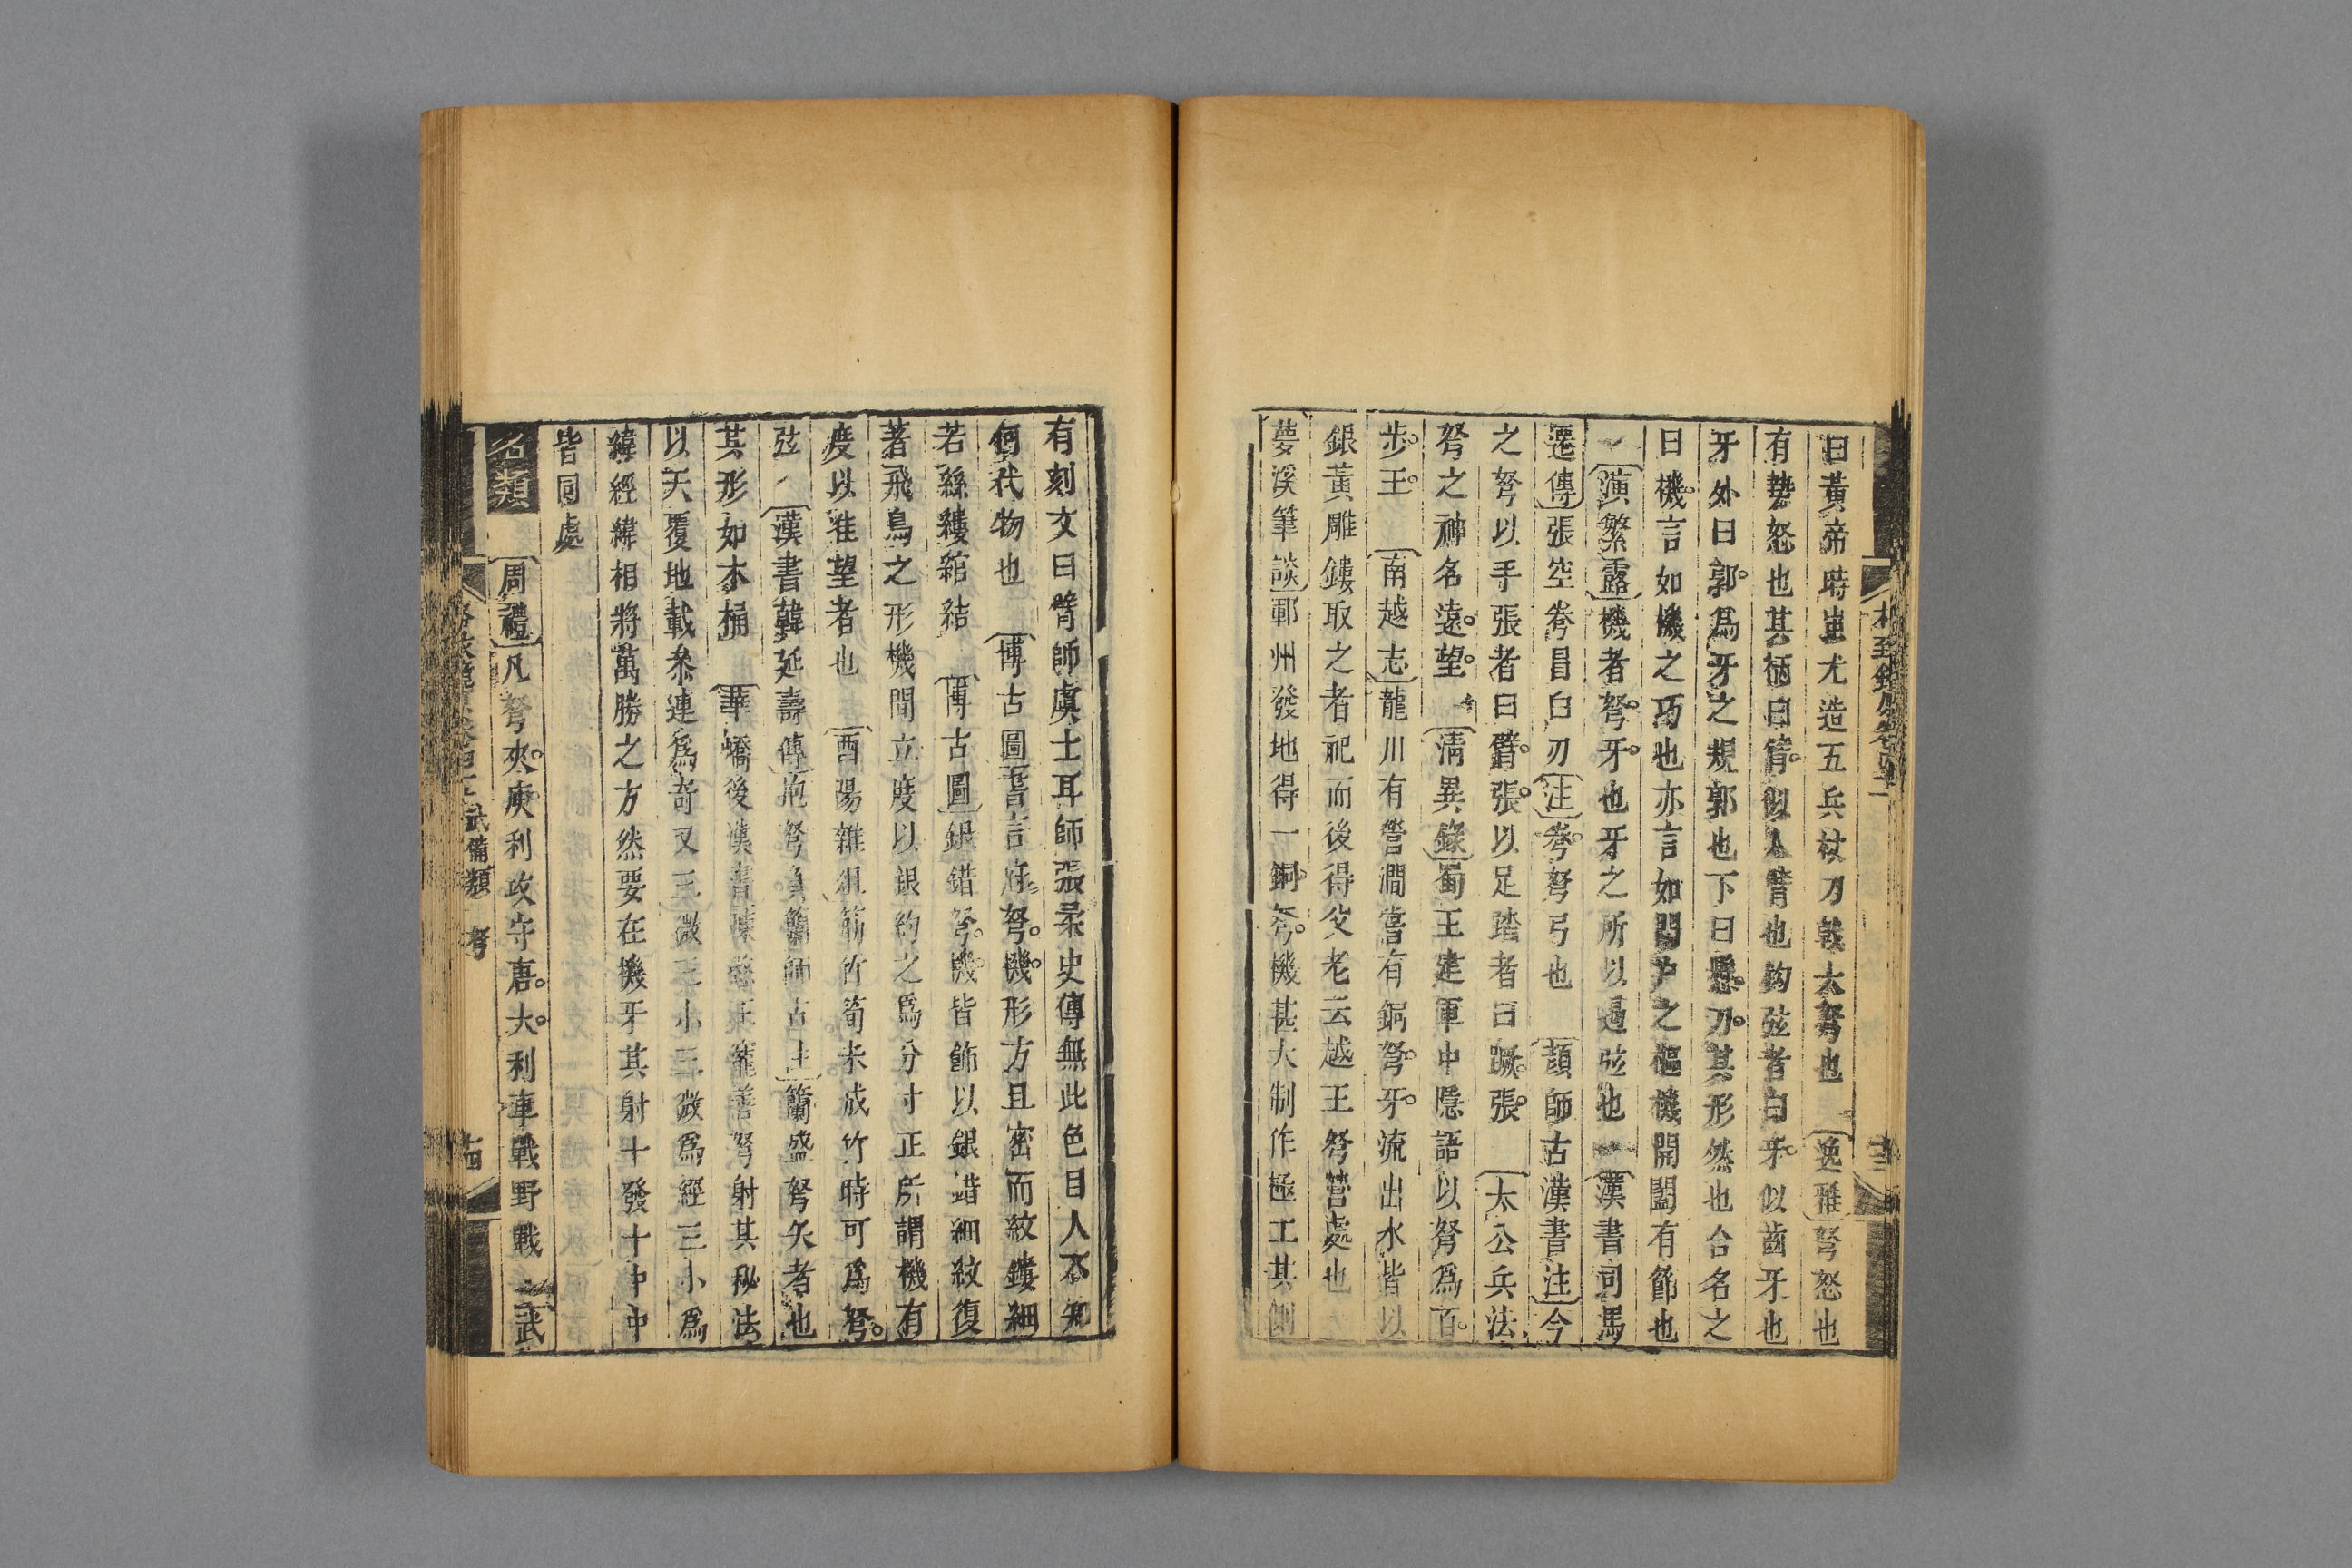 曰黃帝時蚩尤造五兵杖刀戟大弩也 逸雅弩怒也
有勢怒也其柄曰臂似人臂也鈎弦者曰牙似齒牙也
牙外曰郭爲牙之規郭也下曰懸刀其形然也合名之
曰機言如機之巧也亦言如門戶之樞機開闔有節也
演繁露機者弩牙也牙之所以過弦也 漢書司馬
遷傳張空弮冒白刃注弮弩弓也 顏師古漢書注今
之弩以手張者曰臂張以足踏者曰蹶張 太公兵法
弩之神名遠望 淸異錄蜀王建軍中隱語以弩爲百
步王 南越志龍川有營澗嘗有銅弩牙流出水皆以
銀黃雕鏤取之者祀而後得父老云越王弩營處也
夢溪筆談鄆州發地得一銅弩機甚大制作極工其側
有刻文曰臂師虞士耳師張柔史傳無此色目人不知
何代物也 博古圖書言府弩機形方且密而紋鏤細
若絲縷綰結 博古圖銀錯弩機皆飾以銀錯細紋復
著飛鳥之形機間立度以銀約之爲分寸正所謂機有
度以准望者也 酉陽雜俎筋竹筍未成竹時可爲弩
弦 漢書韓延壽傳抱弩負籣師古注籣盛弩矢者也
其形如木桶 華嶠後漢書陳愍王寵善弩射其秘法
以天覆地載參連爲奇又三微三小三微爲經三小爲
緯經緯相將萬勝之方然要在機牙其射十發十中中
皆同處
名類 周禮凡弩夾庾利攻守唐大利車戰野戰 武
武備類 弩